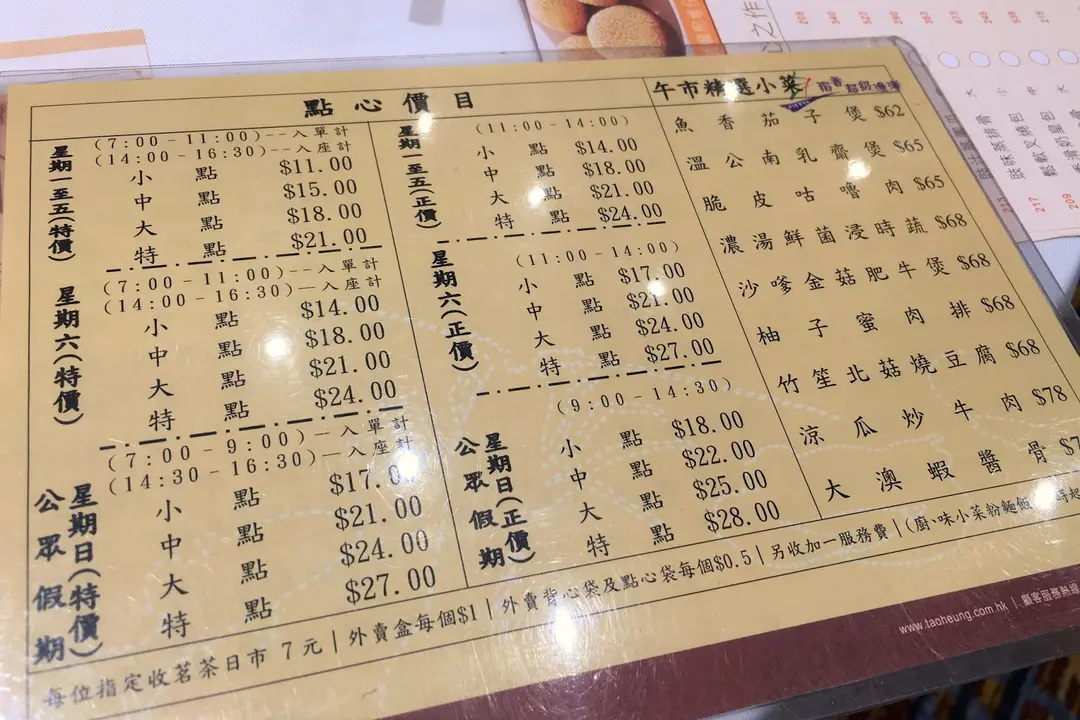 點心價目
星期一至五(特價)
(7:00-11:00)--入單計
(14:00-16:30)--入座計
小點 $11.00
中點 $15.00
大點 $18.00
特點 $21.00
星期六(特價)
(7:00-11:00)--入單計
(14:00-16:30)--入座計
小點 $14.00
中點 $18.00
大點 $21.00
特點 $24.00
星期日(特價)
公眾假期
(7:00-9:00)—入單計
(14:30-16:30)—入座計
小點 $17.
中點 $21.00
大點 $24.00
特點 $27.00
星期一至五(正價)
(11:00-14:00)
小點 $14.00
中點 $18.00
大點 $21.00
特點 $24.00
星期六(正價)
(11:00-14:00)
小點 $17.00
中點 $21.00
大點 $24.00
特點 $27.00
星期日(正價)
公眾假期
(9:00-14:30)
小點 $18.00
中點 $22.00
大點 $25.00
特點 $28.00
午市精選小菜
稻香超級漁港
魚香茄子煲 $62
溫公南乳齋煲 $65
脆皮咕嚕肉 $65
濃湯鮮菌浸時蔬 $68
沙嗲金菇肥牛煲 $68
柚子蜜肉排 $68
竹笙北菇燒豆腐 $68
涼瓜炒牛肉 $78
大澳蝦醬骨 $7
每位指定收茗茶日市 7 元 | 外賣盒每個$1 | 外賣背心袋及點心袋每個$0.5 | 另收加一服務費 | (廚、味小菜粉麵飯
www.taoheung.com.hk | 顧客服務熱線
之作
217
209